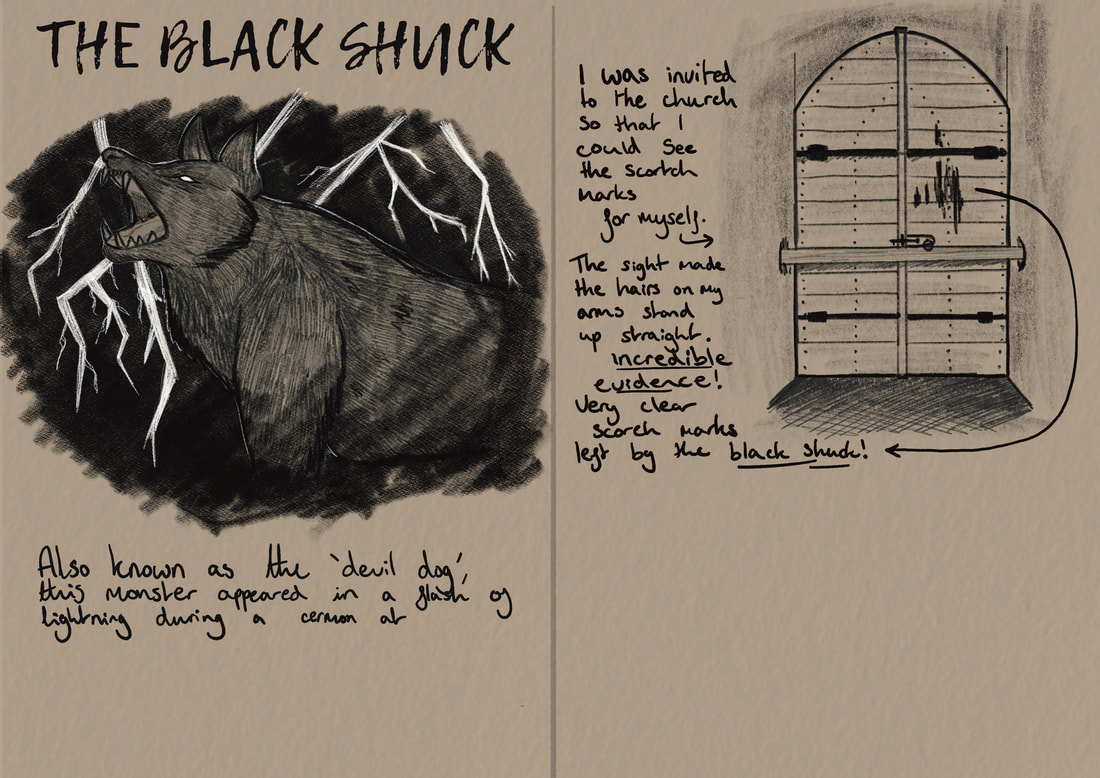 THE BLACK SHUCK
Also known as the 'devil dog',
this monster appeared in a flash of
lightning during a cermon at
I was invited
to the church
so that I
could see
the scortch
marks
for myself.
The sight made
the hairs on my
arms stand
up straight.
incredible
evidence!
Very clear
scorch marks
left by the black shuck!